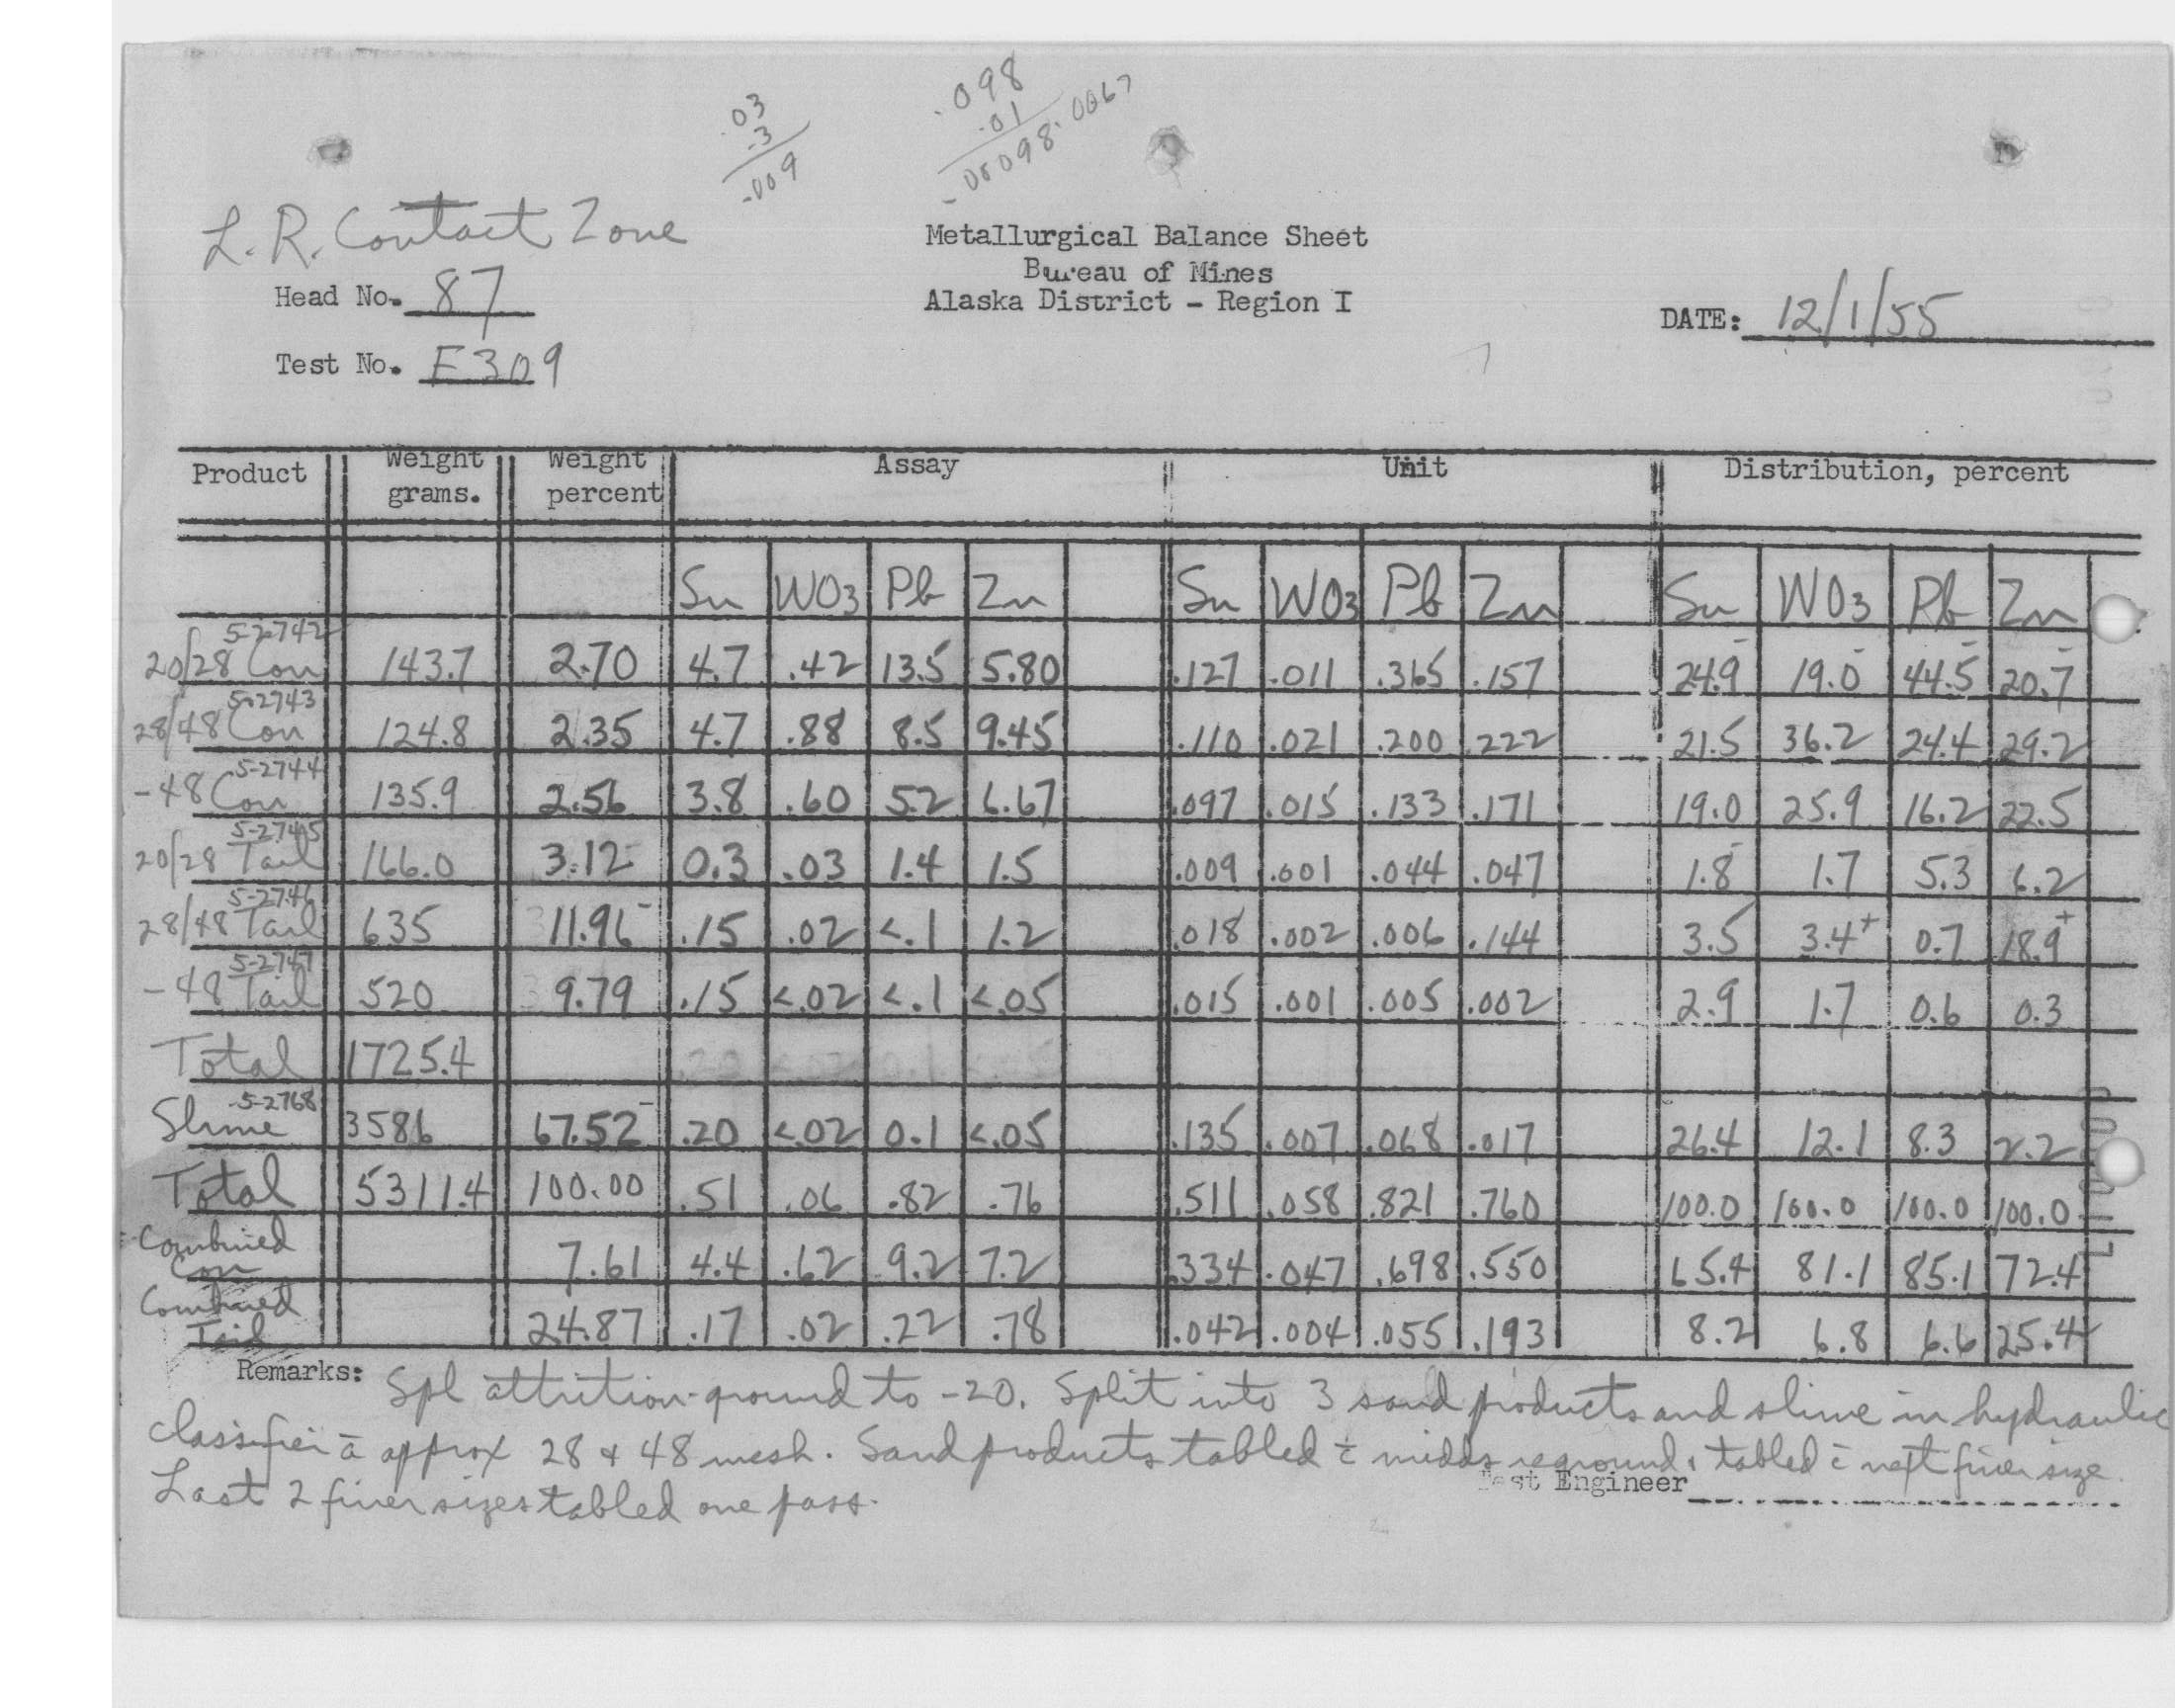 .03
.3
.009
.098
.01
.00098
.0067
L.R. Contact Zone
Metallurgical Balance Sheet
Bureau of Mines
Alaska District - Region I
Head No. 87
DATE: 12/1/55
Test No. E309
Product Weight grams. Weight percent Assay Unit Distribution, percent
Sn WO3 Pb Zn Sn WO3 Pb Zn Sn WO3 Pb Zn
5-2742
20/28 Con 143.7 2.70 4.7 .42 13.5 5.80 .127 .011 .365 .157 24.9 19.0 44.5 20.7
5-2743
28/48 Con 124.8 2.35 4.7 .88 8.5 9.45 .110 .021 .200 .222 21.5 36.2 24.4 29.2
5-2744
-48 Con 135.9 2.56 3.8 .60 5.2 6.67 .097 .015 .133 .171 19.0 25.9 16.2 22.5
5-2745
20/28 Tail 166.0 3.12 0.3 .03 1.4 1.5 .009 .001 .044 .047 1.8 1.7 5.3 6.2
5-2746
28/48 Tail 635 11.96 .15 .02 <.1 1.2 .018 .002 .006 .144 3.5 3.4+ 0.7 18.9+
5-2747
-48 Tail 520 9.79 .15 <.02 <.1 <.05 .015 .001 .005 .002 2.9 1.7 0.6 0.3
Total 1725.4
5-2768
Slime 3586 67.52 .20 <.02 0.1 <.05 .135 .007 .068 .017 26.4 12.1 8.3 2.2
Total 5311.4 100.00 .51 .06 .82 .76 .511 .058 .821 .760 100.0 100.0 100.0 100.0
Combined Con 7.61 4.4 .62 9.2 7.2 .334 .047 .698 .550 65.4 81.1 85.1 72.4
Combined Tail 24.87 .17 .02 .22 .78 .042 .004 .055 .193 8.2 6.8 6.6 25.4
Remarks: Spl attrition-ground to -20. Split into 3 sand products and slime in hydraulic
classifier ā approx 28 & 48 mesh. Sand products tabled c̄ midds reground & tabled c̄ next finer size.
Last 2 finer sizes tabled one pass.
Test Engineer